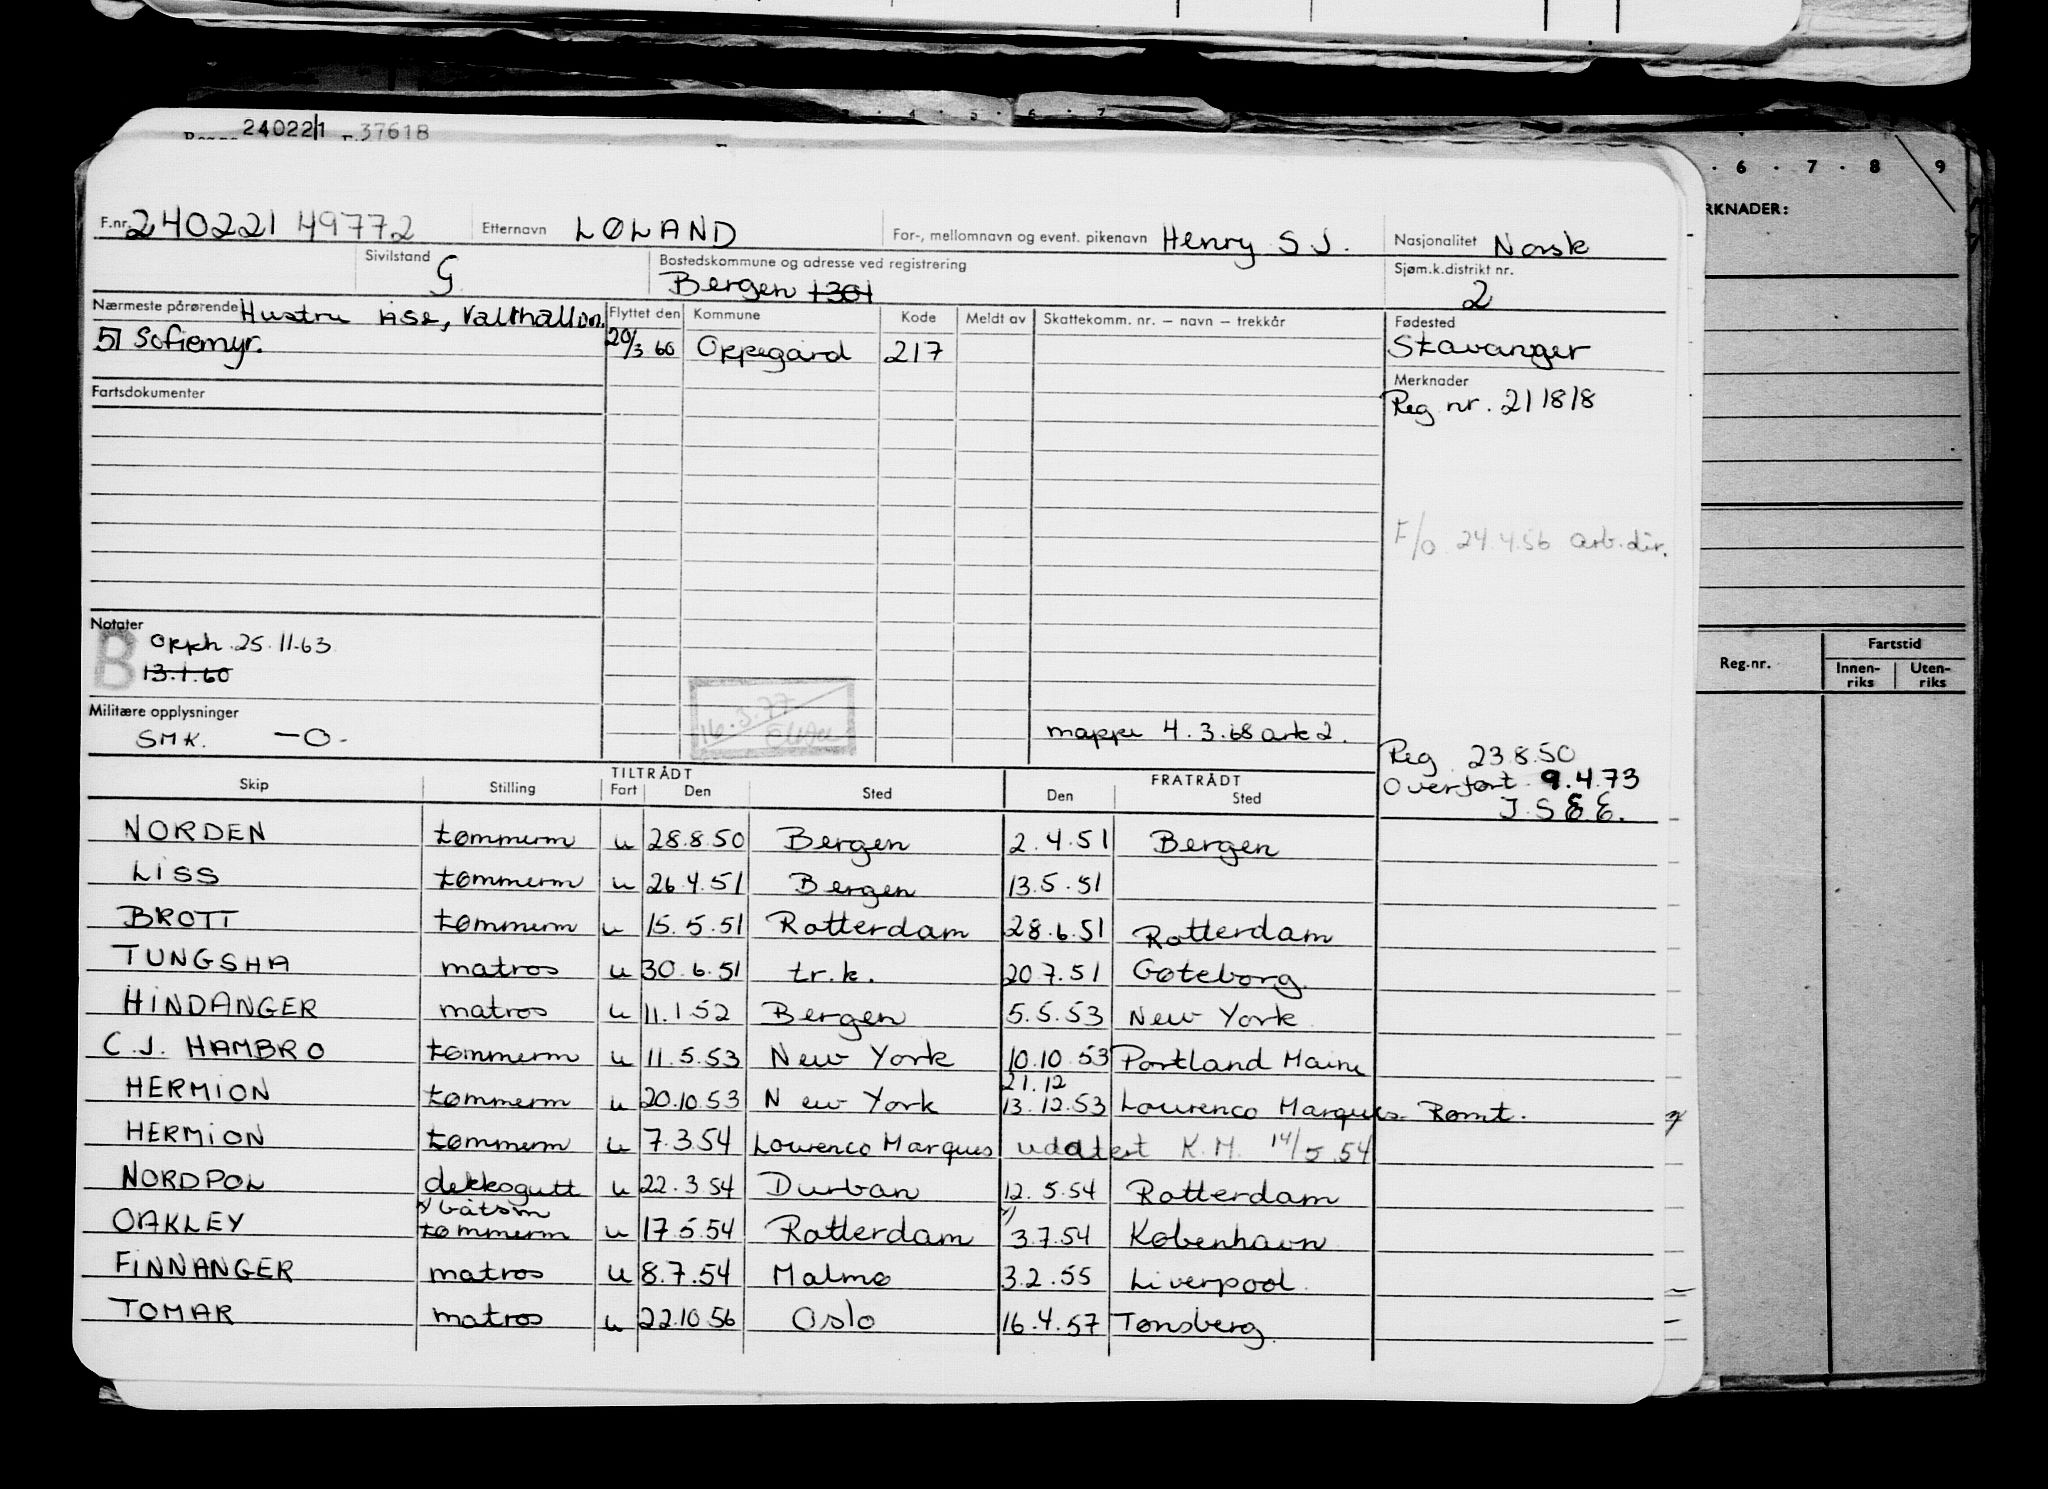 3 . 4 . 5 . 6 . 7
240221 37618
. 6 . 7 . 8 9
RKNADER:
F.nr. 240221 49772 Etternavn LØLAND For-, mellomnavn og event. pikenavn Henry S J. Nasjonalitet Norsk
Sivilstand G Bostedskommune og adresse ved registrering Bergen 1301 Sjøm.k.distrikt nr. 2
Nærmeste pårørende Hustru Åse, Valhallvn. Flyttet den Kommune Kode Meldt av Skattekomm. nr. – navn – trekkår Fødested
51 Sofiemyr. 20/3 66 Oppegård 217 Stavanger
Fartsdokumenter Merknader
Reg nr. 211818
F/o 24.4.56 arb.dir.
Notater
B Opph. 25.11.63
13.1.60
16.3.77
Militære opplysninger
SMK. —O- mappe 4.3.68 ark 2.
Reg 23.8.50
Overført 9.4.73
J.S&E.
Reg.nr. Fartstid
Innenriks Utenriks
TILTRÅDT FRATRÅDT
Skip Stilling Fart Den Sted Den Sted
NORDEN tømmerm u 28.8.50 Bergen 2.4.51 Bergen
LISS tømmerm u 26.4.51 Bergen 13.5.51
BROTT tømmerm u 15.5.51 Rotterdam 28.6.51 Rotterdam
TUNGSHA matros u 30.6.51 tr.k. 20.7.51 Gøteborg.
HINDANGER matros u 11.1.52 Bergen 5.5.53 New York
C.J. HAMBRO tømmerm u 11.5.53 New York 10.10.53 Portland Maine
21.12
HERMION tømmerm u 20.10.53 New York 13.12.53 Lourenco Marques. Rømt.
HERMION tømmerm u 7.3.54 Lourenco Marques udatert K.M. 14/5.54
NORDPOL dekksgutt u 22.3.54 Durban 12.5.54 Rotterdam
x/ båtsm
OAKLEY tømmerm u 17.5.54 Rotterdam 3.7.54 København
FINNANGER matros u 8.7.54 Malmø 3.2.55 Liverpool.
TOMAR matros u 22.10.56 Oslo 16.4.57 Tønsberg.